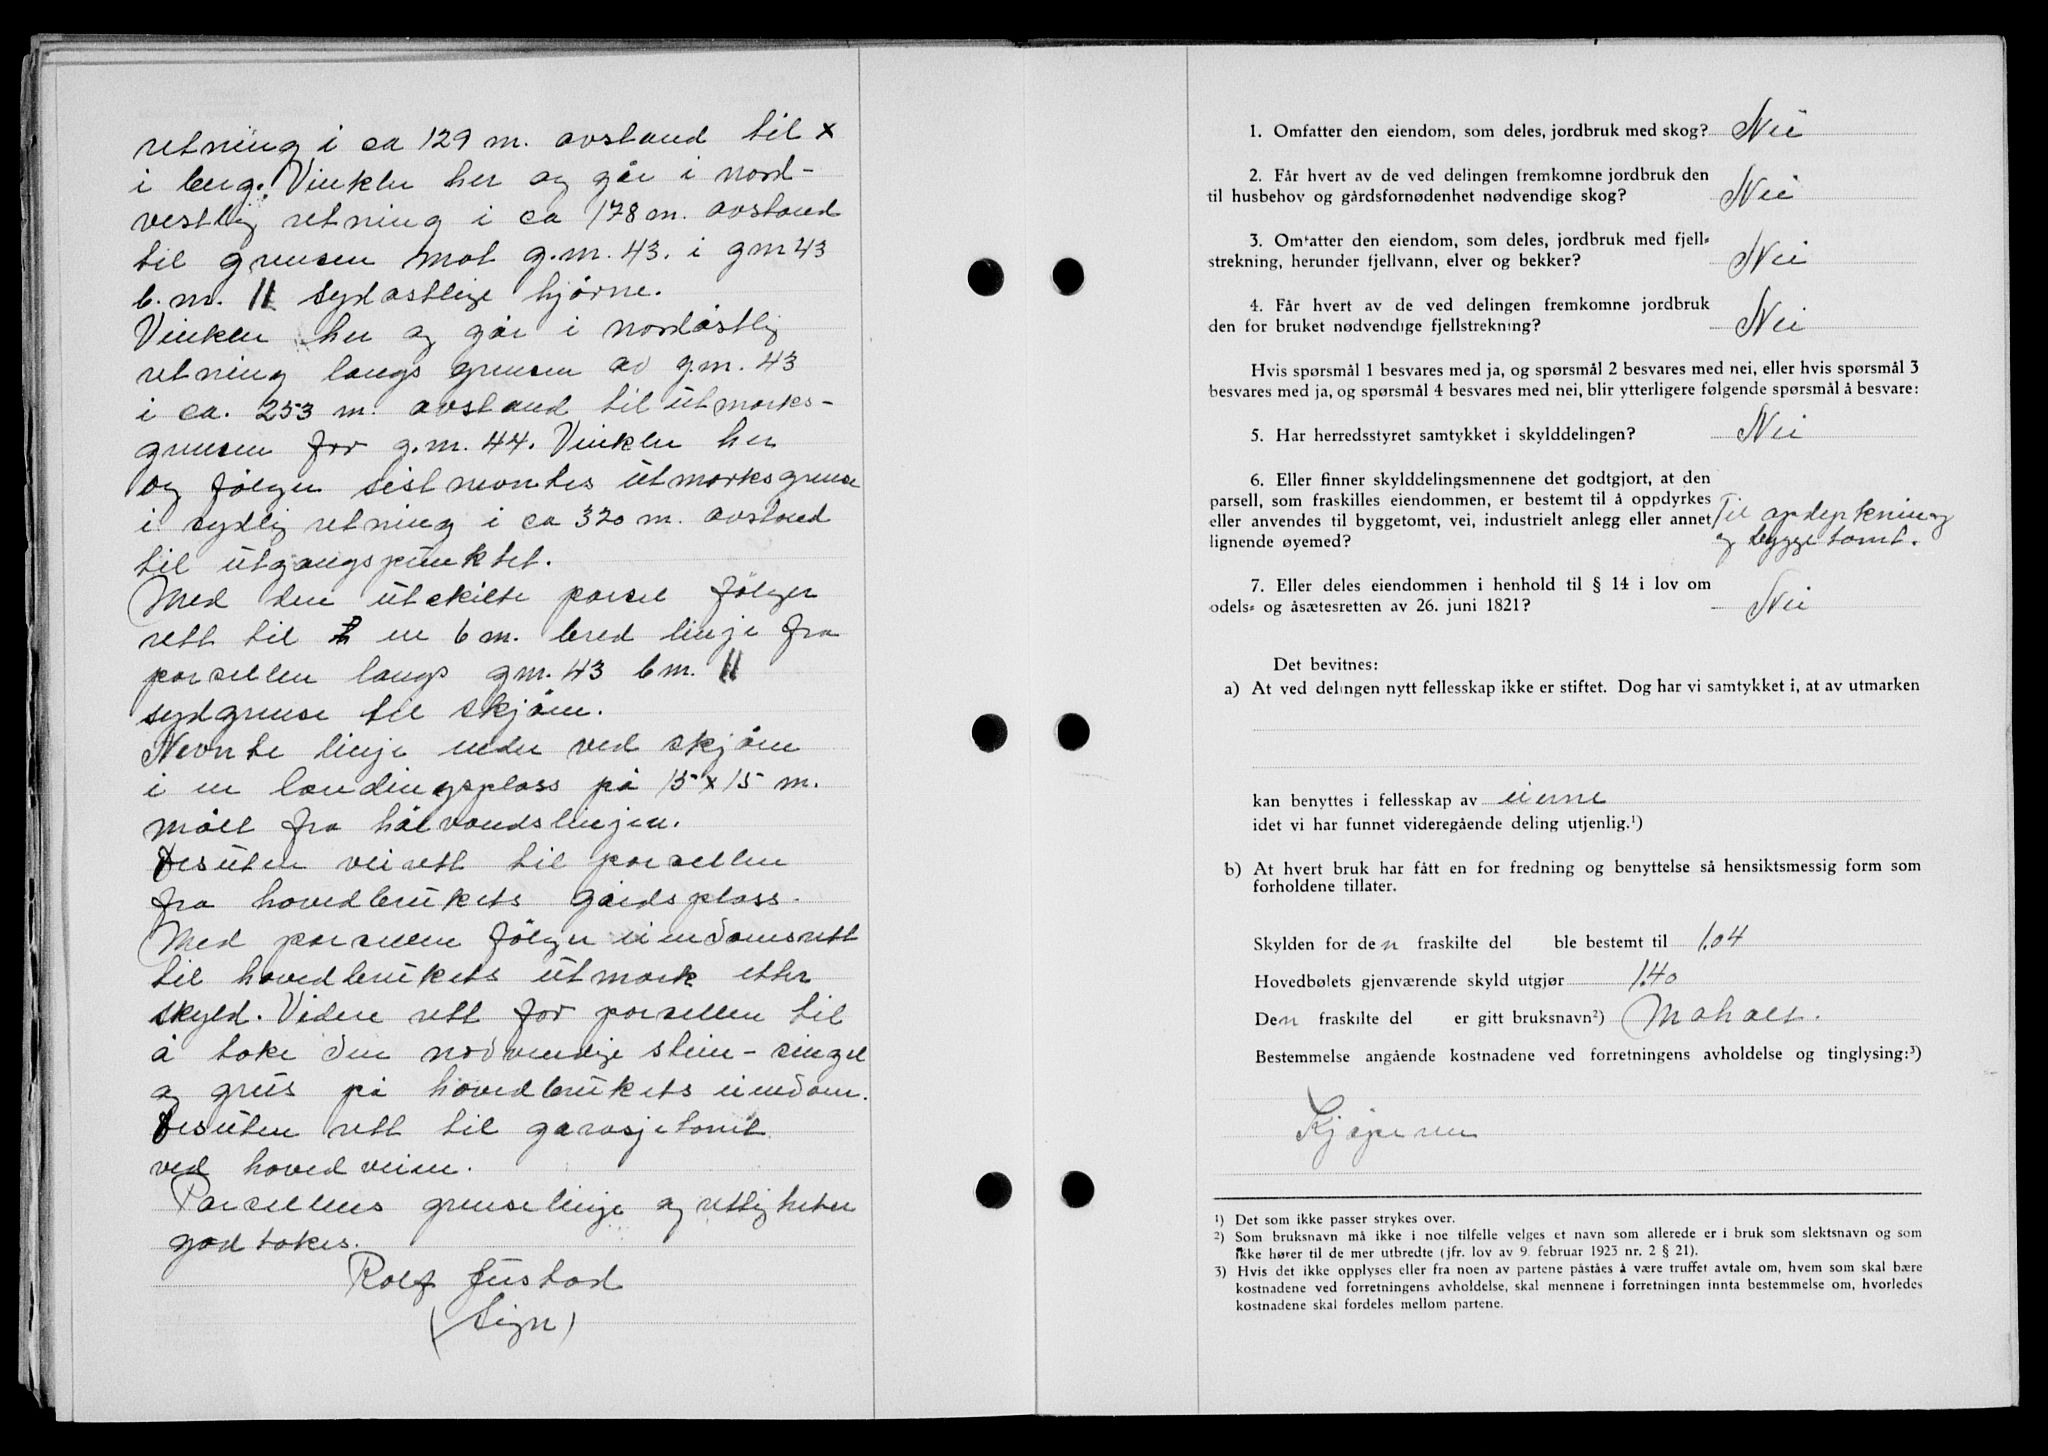 retning i ca 129 m. avstand til x
i berg. Vinkler her og går i nord-
vestlig retning i ca 178 m. avstand
til grensen mot g.m. 43. i gm 43
b.m. 11 sydøstlige hjørne.
Vinkler her og går i nordøstlig
retning langs grensen av g.m. 43
i ca. 253 m. avstand til utmarks-
grensen for g.m. 44. Vinkler her
og følger sistnevntes utmarksgrense
i sydlig retning i ca 320 m. avstand
til utgangspunktet.
Med den utskilte parsel følger
rett til en 6 m. bred linje fra
parsellen langs gm. 43 bm. 11
sydgrense til skjøen.
Nevnte linje ender ved skjøen
i en landingsplass på 15 x 15 m.
målt fra hålvandslinjen.
Desuten veirett til parsellen
fra hovedbrukets gårdsplass.
Med parsellen følger eiendomsrett
til hovedbrukets utmark etter
skyld. Videre rett for parsellen til
å take den nødvendige stein - singel
og grus på hovedbrukets eiendom.
Desuten rett til garasjetomt
ved hovedveien.
Parsellens grenselinje og rettigheter
godtakes.
Rolf Justad
(Sign)
1. Omfatter den eiendom, som deles, jordbruk med skog? Nei
2. Får hvert av de ved delingen fremkomne jordbruk den
til husbehov og gårdsfornødenhet nødvendige skog? Nei
3. Omfatter den eiendom, som deles, jordbruk med fjell-
strekning, herunder fjellvann, elver og bekker? Nei
4. Får hvert av de ved delingen fremkomne jordbruk
den for bruket nødvendige fjellstrekning? Nei
Hvis spørsmål 1 besvares med ja, og spørsmål 2 besvares med nei, eller hvis spørsmål 3
besvares med ja, og spørsmål 4 besvares med nei, blir ytterligere følgende spørsmål å besvare:
5. Har herredsstyret samtykket i skylddelingen? Nei
6. Eller finner skylddelingsmennene det godtgjort, at den
parsell, som fraskilles eiendommen, er bestemt til å oppdyrkes
eller anvendes til byggetomt, vei, industrielt anlegg eller annet Til opdyrkning
lignende øyemed? og byggetomt.
7. Eller deles eiendommen i henhold til § 14 i lov om
odels- og åsætesretten av 26. juni 1821? Nei
Det bevitnes:
a) At ved delingen nytt fellesskap ikke er stiftet. Dog har vi samtykket i, at av utmarken
kan benyttes i fellesskap av eierne
idet vi har funnet videregående deling utjenlig.¹)
b) At hvert bruk har fått en for fredning og benyttelse så hensiktsmessig form som
forholdene tillater.
Skylden for den fraskilte del ble bestemt til 1.04
Hovedbølets gjenværende skyld utgjør 1.40
Den fraskilte del er gitt bruksnavn²) Moholt.
Bestemmelse angående kostnadene ved forretningens avholdelse og tinglysing:³)
Kjøperen
¹) Det som ikke passer strykes over.
²) Som bruksnavn må ikke i noe tilfelle velges et navn som allerede er i bruk som slektsnavn og som
ikke hører til de mer utbredte (jfr. lov av 9. februar 1923 nr. 2 § 21).
3) Hvis det ikke opplyses eller fra noen av partene påståes å være truffet avtale om, hvem som skal bære
kostnadene ved forretningens avholdelse, skal mennene i forretningen innta bestemmelse om, hvorledes
kostnadene skal fordeles mellom partene.